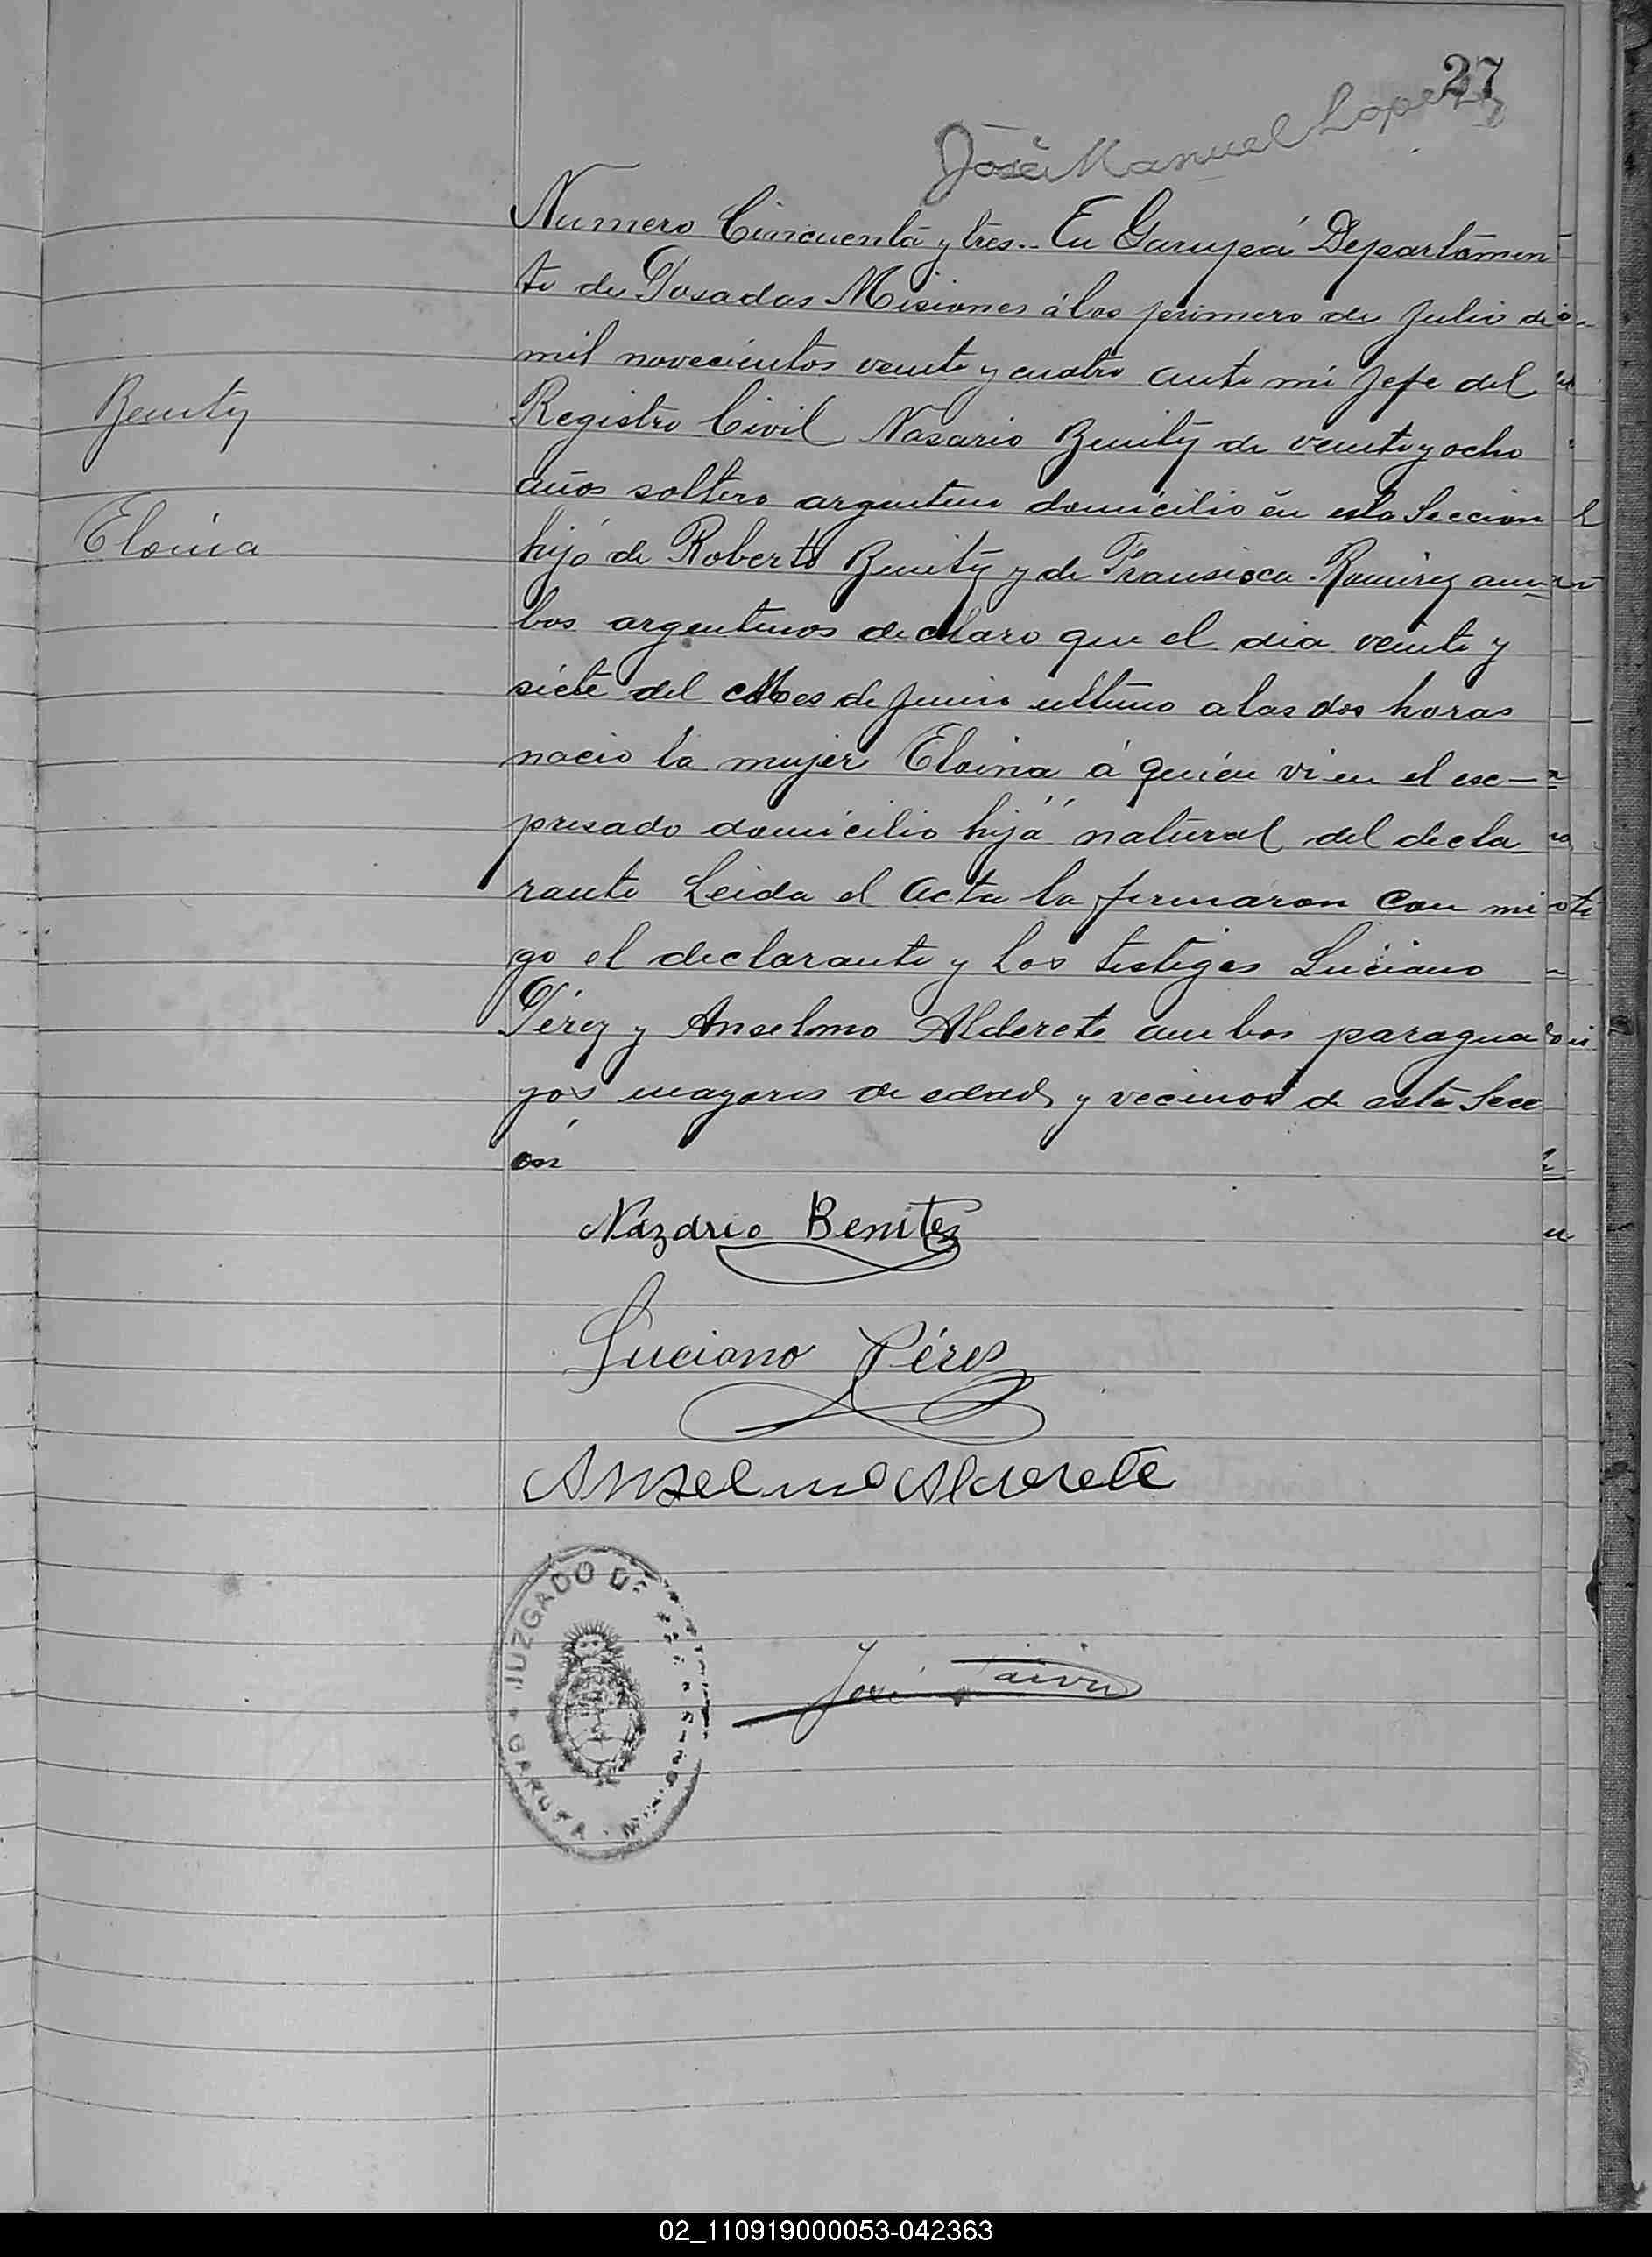 27
José Manuel Lopez
Numero Cincuenta y tres.. En Garupá Departamen
to de Posadas Misiones á los primero de Julio de
mil novecientos veinte y cuatro ante mi Jefe del
Benitez
Registro Civil Nasario Benitez de veinte y ocho
años soltero argentino domicilio en esta Seccion
Eloina
hijo de Roberto Benitez y de Fransisca Ramirez am
bos argentinos declaro que el dia veinte y
siete del Mes de Junio ultimo a las dos horas
nacio la mujer Eloina á quien vi en el es–
presado domicilio hija natural del decla
rante Leida el acta la firmaron con mi
go el declarante y los testigos Luciano
Pérez y Anselmo Alderete ambos paragua
yos mayores de edad y vecinos de esta Secc
on
Nazario Benitez
Luciano Pérez
Anselmo Alderete
JUZGADO DE
GARUPA
José Paiva
02_110919000053-042363